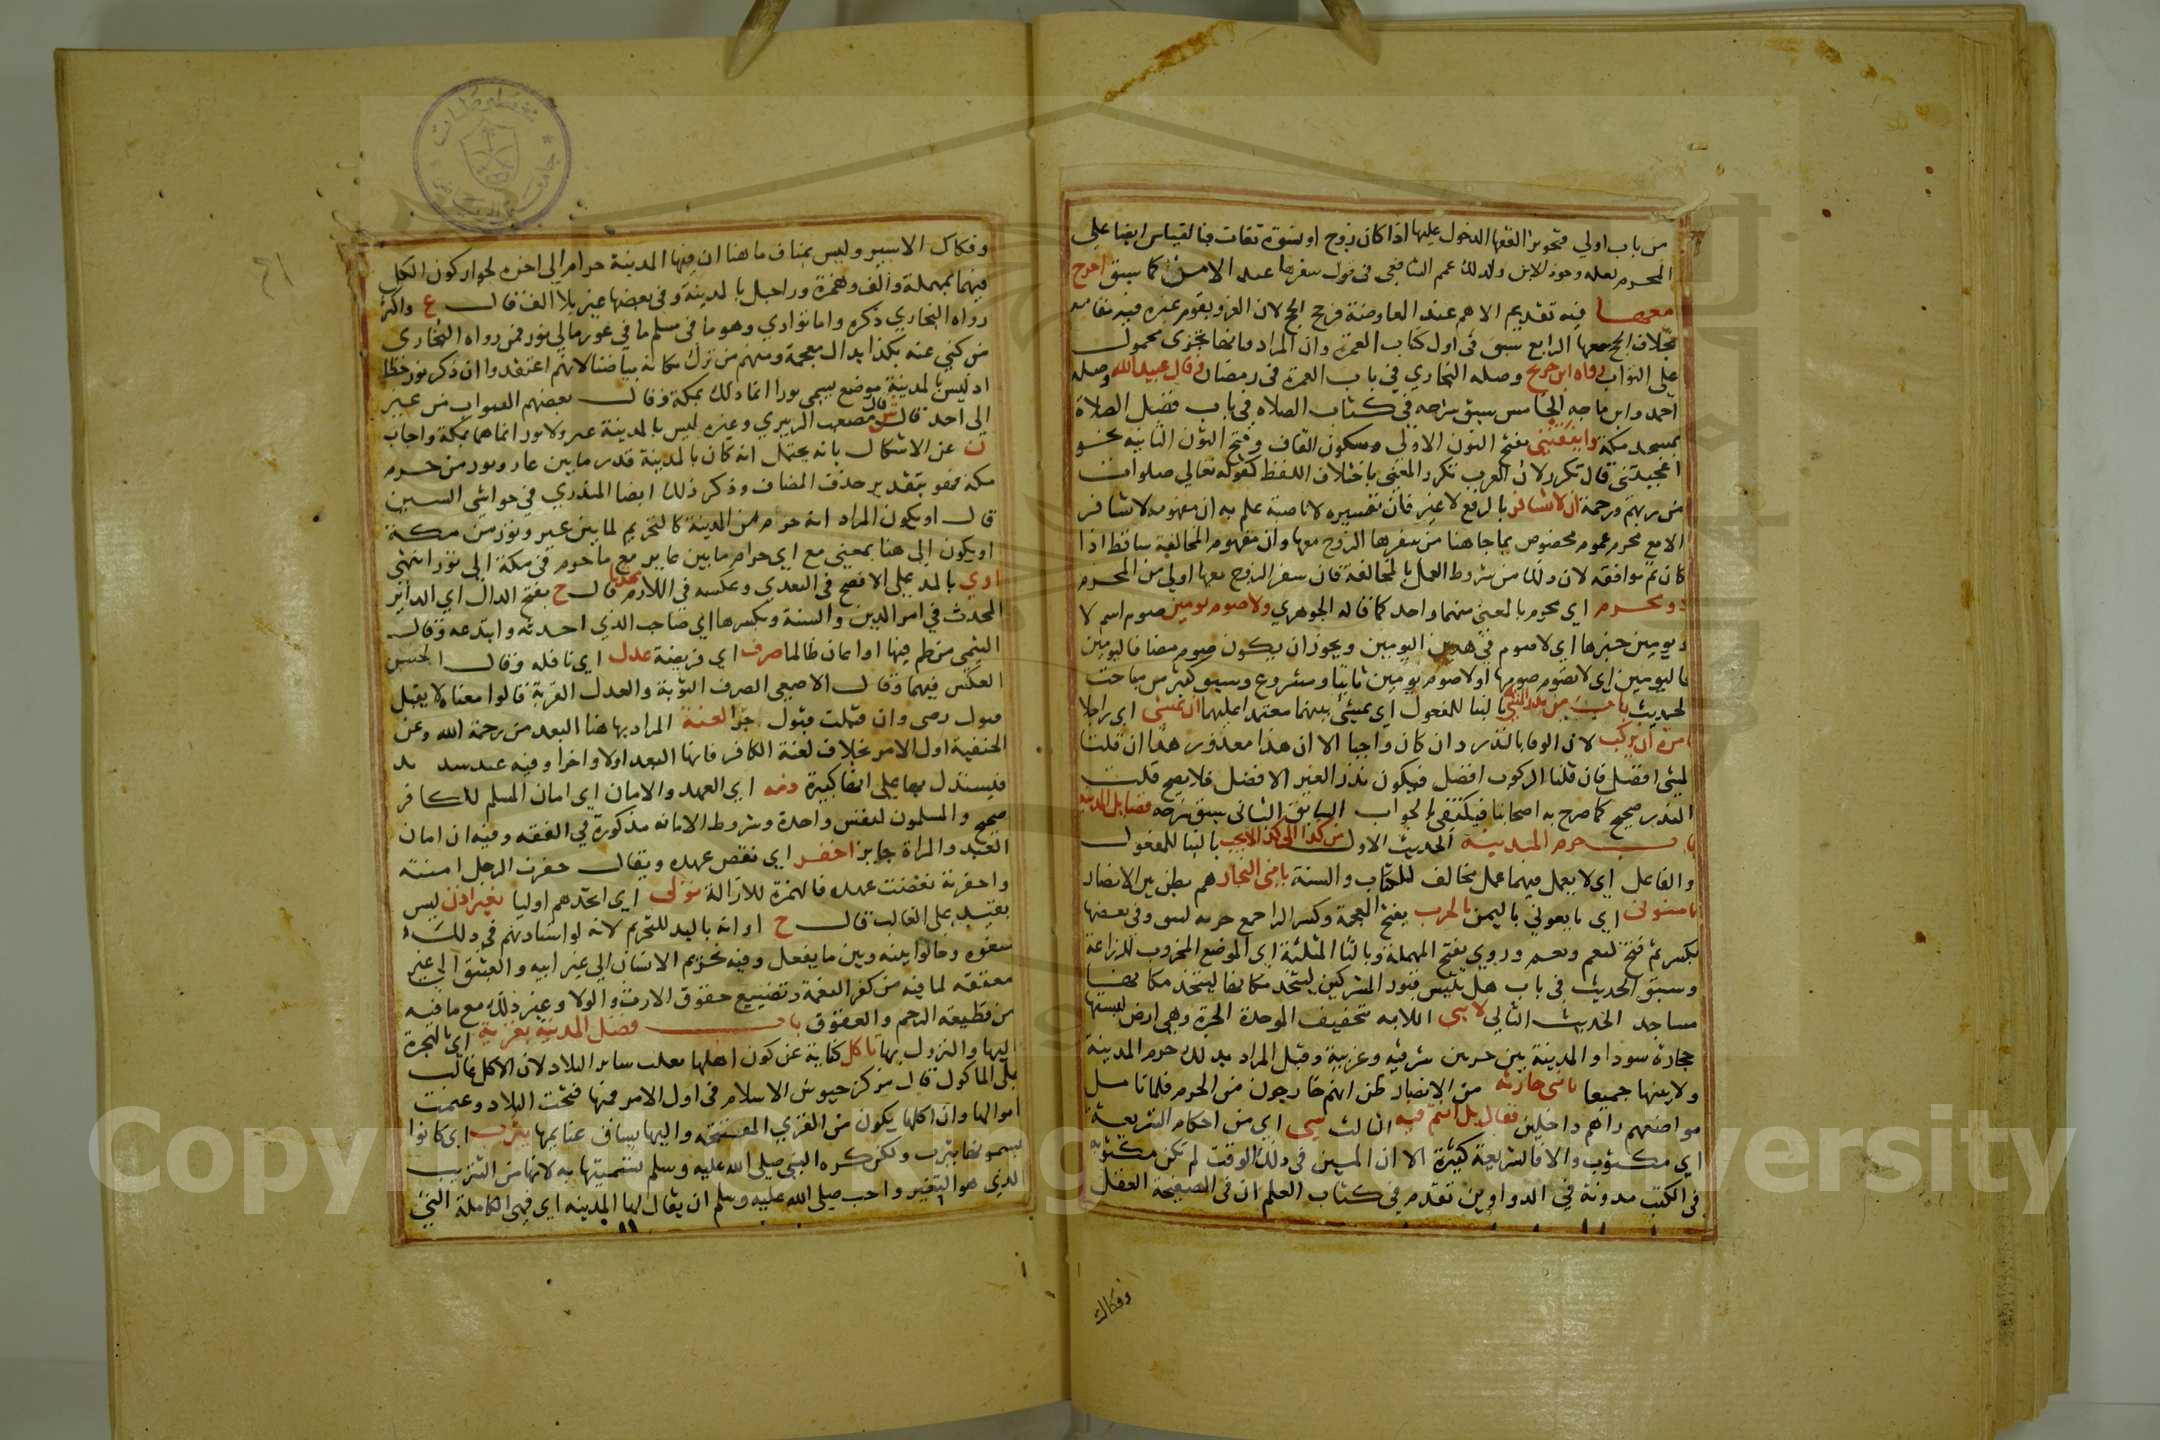 من باب اولي فتجويز الفقها الدخول عليها اذا كان زوج او نسوة ثقات فبالقياس ايضا علي
المحرم لعله وجود الامن ولذلك عمم الشافعي في قول سفرها عند الامن كما سبق اخرج
معها فيه تقديم الاهم عند المعارضة فرجح الحج لان الغزو يقوم غيره فيه مقامه
بخلاف الحج معها الرابع سبق في اول كتاب العمرة وان المراد فانها تجزى محمول
علي الثواب رواه ابن جريج وصله البخاري في باب العمرة في رمضان وقال عبيد الله وصله
احمد وابن ماجه الخامس سبق شرحه في كتاب الصلاه في باب فضل الصلاة
بمسجد مكة وانقنني بفتح النون الاولي وسكون القاف وفتح النون الثانيه نحو
اعجبتني قال تكرر لان العرب تكرر المعني باختلاف اللفظ كقوله تعالي صلوات
من ربهم ورحمة ان لا تسافر بالرفع لا غير فان تفسيره لا ناصبة علم به ان مفهومه لا تسافر
الا مع محرم عموم مخصوص بما جا هنا من سفرها الزوج معها وان مفهوم المخالفة ساقط اذا
كان ثم موافقه لان ذلك من شروط العمل بالمخالفة فان سفر الزوج معها اولي من المحرم
ذو محرم اي محرم بالمعني منهما واحد كما قاله الجوهري ولا صوم يومين صوم اسم لا
ويومين خبرها اي لا صوم في هدين اليومين ويجوز ان يكون صوم مضافا ليومين
اليومين اي لا تصوم صومها او لا صوم يومين ثابتا ومشروع وسبق كثير من مباحث
الحديث باب من نذر المشي بالبنا للمفعول اي يمشي بينهما معتمدا عليهما ان يمشي اي راجلا
امره ان يركب لان الوفا بالنذر وان كان واجبا الا ان هذا معذور هذا ان قلنا
المشي افضل فان قلنا الركوب افضل فيكون نذر الغير الافضل فلا يصح قلت
النذر صحيح كما صرح به اصحابنا فيكتفي الجواب السابق الثاني سبق شرحه فضايل المدينه
باب حرم المدينة الحديث الاول من كذا الي كذا لا يجب بالبنا للمفعول
والفاعل اي لا يعمل فيهما عمل مخالف للكتاب والسنة يا بني النجار هم بطن من الانصار
ثامنوني اي بايعوني بالثمن بالخرب بفتح المعجمة وكسر الرا جمع خربه لنبق وفي بعضها
بكسر ثم فتح لنعم ونعم وروي بفتح المهملة وبالثا المثلثة اي الموضع المحروث للزراعة
وسبق الحديث في باب هل تنبش قبور المشركين ليتخذ مكانها ليتخذ مكانها
مساجد الحديث الثاني لابتي اللابه بتخفيف الموحدة الحرة وهي ارض لبستها
حجارة سودا والمدينة بين حرتين شرقيه وغربية وقيل المراد بذلك حرم المدينة
ولا بيتها جميعا يا بني حارثه من الانصار ظن انهم خارجون من الحرم فلما تامل
مواضعهم راهم داخلين فقال بل انتم فيه الثالث شي اي من احكام الشريعة
اي مكتوب والا فالشريعة كثيرة الا ان السنن في ذلك الوقت لم تكن مكتوبه
في الكتب مدونة في الدواوين تقدم في كتاب العلم ان في الصحيفة العقل
وفكاك
وفكاك الاسير وليس بمناف ما هنا ان فيها المدينة حرام الي اخره لجواز كون الكل
فيها بمهملة والف وهمزة ورا جبل بالمدينة وفي بعضها عير بلا الف قال ع واكثر
رواه البخاري ذكره واما ثواري وهو ما في مسلم ما في غور مالي ثور فمن رواه البخاري
من كني عنه بكذا بدال معجمة ومنهم من ترك مكانه بياضا لانهم اعتقدوا ان ذكر ثور خطا
اذ ليس بالمدينة موضع يسمي ثورا انما ذلك بمكة وقال بعضهم الصواب من عير
الي احد قال ش قال مصعب الزبيري وغيره ليس بالمدينة عير ولا ثور انما هما بمكة واجاب
ن عن الاشكال بانه يحتمل انه كان بالمدينة قدر ما بين عار وثور من حرم
مكه فهو بتقدير حذف المضاف وذكر ذلك ايضا المنذري في حواشي السنن
قال او يكون المراد انه حرم من المدينة كالتحريم لما بين عير وثور من مكة
او يكون الي هنا بمعني مع اي حرام ما بين عاير مع ما حرم في مكة الي ثور انتهي
اوي بالمد علي الافصح في التعدي وعكسه في اللازم محدثا قال ح بفتح الدال اي الداير
المحدث في امر الدين والسنة وبكسرها اي صاحب الذي احدثه وابتدعه وقال
التيمي من ظلم فيها او اعان ظالما صرف اي فريضة عدل اي نافله وقال الحسن
العكس فيهما وقال الاصمعي الصرف التوبة والعدل الفدية قالوا معناه لا يقبل
قبول رضي وان قبلت قبول جزا لعنة المراد بها هنا البعد من رحمة الله وعن
الحنفية اول الامر بخلاف لعنة الكافر فانها البعد اولا واخرا وفيه عند
فيستدل بها علي انها كبيرة ذمه اي العهد والامان اي امان المسلم للكافر
صحيح والمسلمون لنفس واحدة وشروط الامانه مذكورة في الفقه وفيه ان امان
العبد والمراة جايز اخفر اي نقض عهده ويقال خفرت الرجل امنته
واخفرته نقضت عهده فالهمزة للازالة تولى اي اتخذهم اوليا بغير اذن ليس
بقيد بل علي الغالب قال ح اوانه باليد للتحريم لانه لو استاذنهم في ذلك
منعوه وحالوا بينه وبين ما يفعل وفيه تحريم الانسان الي غير ابيه والعتيق الي غير
معتقه لما فيه من كفر النعمة وتضييع حقوق الارث والولا وغير ذلك مع ما فيه
من قطيعه الرحم والعقوق باب فضل المدينة بقرية اي الهجرة
اليها والنزول بها تاكل كناية عن كون اهلها تغلب ساير البلاد لان الاكل غالب
علي الماكول قال مركز جيوش الاسلام في اول الامر فمنها فتحت البلاد وغنمت
اموالها وان اكلها يكون من القري المفتتحه واليها يساق غنايمها يثرب اي كانوا
يسمونها يثرب ولكن كره النبي صلي الله عليه وسلم تسميتها به لانها من التثريب
الذي هو التعيير واحب صلي الله عليه وسلم ان يقال لها المدينه اي فهي الكاملة التي